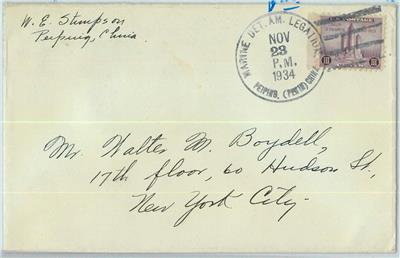 W. E. Stimpson
Peiping, China
MARINE DET. AM. LEGATION
NOV
23
P.M.
1934
PEIPING, (PEKIN) CHINA
U.S. POSTAGE
Mr. Walter M. Boydell,
17th floor, 60 Hudson St.,
New York City.